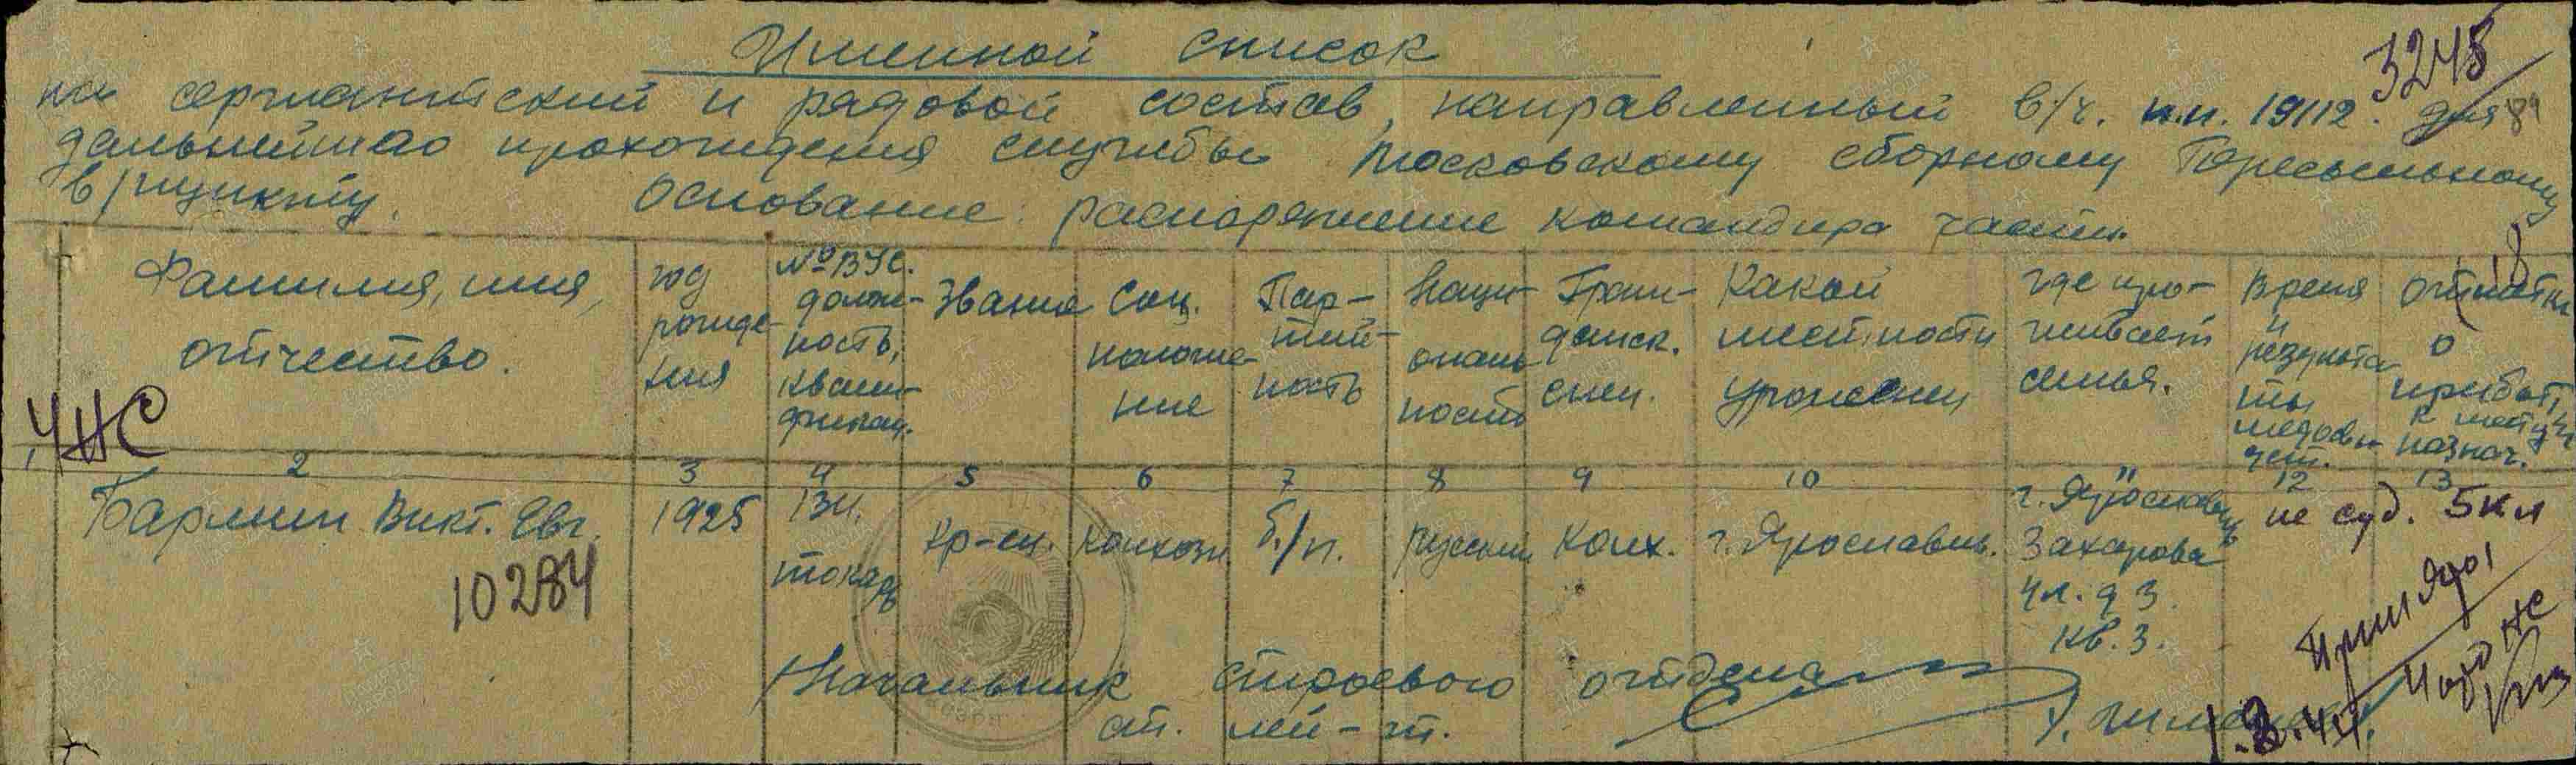 Именной список
3245
на сержантский и рядовой состав, направленный в/ч. п.п. 19112. для
дальнейшго прохождения службы Московскому сборному Пересыльному
в/пункту. Основание: распоряжение командира части.
Фамилия, имя, отчество.
год рожде- ния
№ ВУС. долж- ность, квали- фикац.
Звание
Соц. положе- ние
Пар- тий- ность
Наци- ональ ность
Граж- данск. спец.
Какой местности уроженец
где про- живает семья.
Время и результа ты медосви- дет.
Отметки о прибыт, к месту назнач.
УНС
2 3 4 5 6 7 8 9 10 11 12 13
Бармин Викт. Евг. 1925 134. токарь Кр-ец. колхозн б./п. русский колх. г. Ярославль. г. Ярославль Захарова ул. д 3. кв. 3. не суд. 5 кл
10284
Начальник строевого отдела
ст. лей-т.
1.3.44.